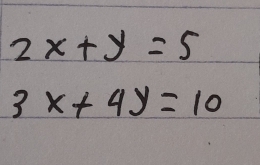 2x+y=5
3x+4y=10